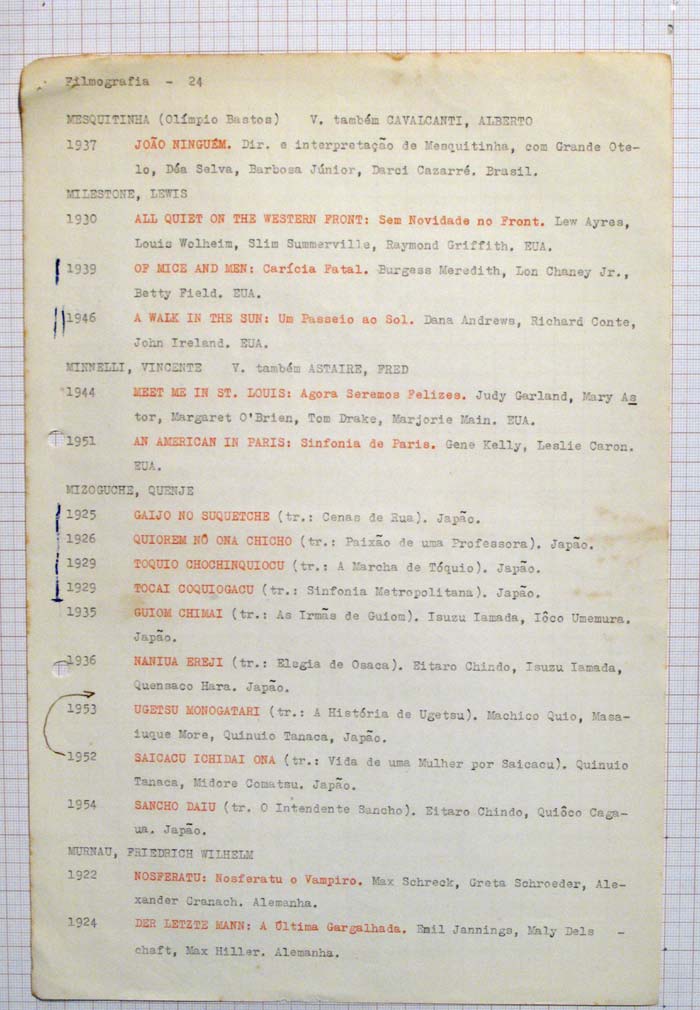 Filmografia - 24
MESQUITINHA (Olímpio Bastos) V. também CAVALCANTI, ALBERTO
1937 JOÃO NINGUÉM. Dir. e interpretação de Mesquitinha, com Grande Ote-
lo, Déa Selva, Barbosa Júnior, Darci Cazarré. Brasil.
MILESTONE, LEWIS
1930 ALL QUIET ON THE WESTERN FRONT: Sem Novidade no Front. Lew Ayres,
Louis Wolheim, Slim Summerville, Raymond Griffith. EUA.
1939 OF MICE AND MEN: Carícia Fatal. Burgess Meredith, Lon Chaney Jr.,
Betty Field. EUA.
1946 A WALK IN THE SUN: Um Passeio ao Sol. Dana Andrews, Richard Conte,
John Ireland. EUA.
MINNELLI, VINCENTE V. também ASTAIRE, FRED
1944 MEET ME IN ST. LOUIS: Agora Seremos Felizes. Judy Garland, Mary As
tor, Margaret O'Brien, Tom Drake, Marjorie Main. EUA.
1951 AN AMERICAN IN PARIS: Sinfonia de Paris. Gene Kelly, Leslie Caron.
EUA.
MIZOGUCHE, QUENJE
1925 GAIJO NO SUQUETCHE (tr.: Cenas de Rua). Japão.
1926 QUIOREM NÔ ONA CHICHO (tr.: Paixão de uma Professora). Japão.
1929 TOQUIO CHOCHINQUIOCU (tr.: A Marcha de Tóquio). Japão.
1929 TOCAI COQUIOGACU (tr.: Sinfonia Metropolitana). Japão.
1935 GUIOM CHIMAI (tr.: As Irmãs de Guiom). Isuzu Iamada, Iôco Umemura.
Japão.
1936 NANIUA EREJI (tr.: Elegia de Osaca). Eitaro Chindo, Isuzu Iamada,
Quensaco Hara. Japão.
1953 UGETSU MONOGATARI (tr.: A História de Ugetsu). Machico Quio, Masa-
iuque More, Quinuio Tanaca, Japão.
1952 SAICACU ICHIDAI ONA (tr.: Vida de uma Mulher por Saicacu). Quinuio
Tanaca, Midore Comatsu. Japão.
1954 SANCHO DAIU (tr. O Intendente Sancho). Eitaro Chindo, Quiôco Caga-
ua. Japão.
MURNAU, FRIEDRICH WILHELM
1922 NOSFERATU: Nosferatu o Vampiro. Max Schreck, Greta Schroeder, Ale-
xander Cranach. Alemanha.
1924 DER LETZTE MANN: A Última Gargalhada. Emil Jannings, Maly Dels -
chaft, Max Hiller. Alemanha.